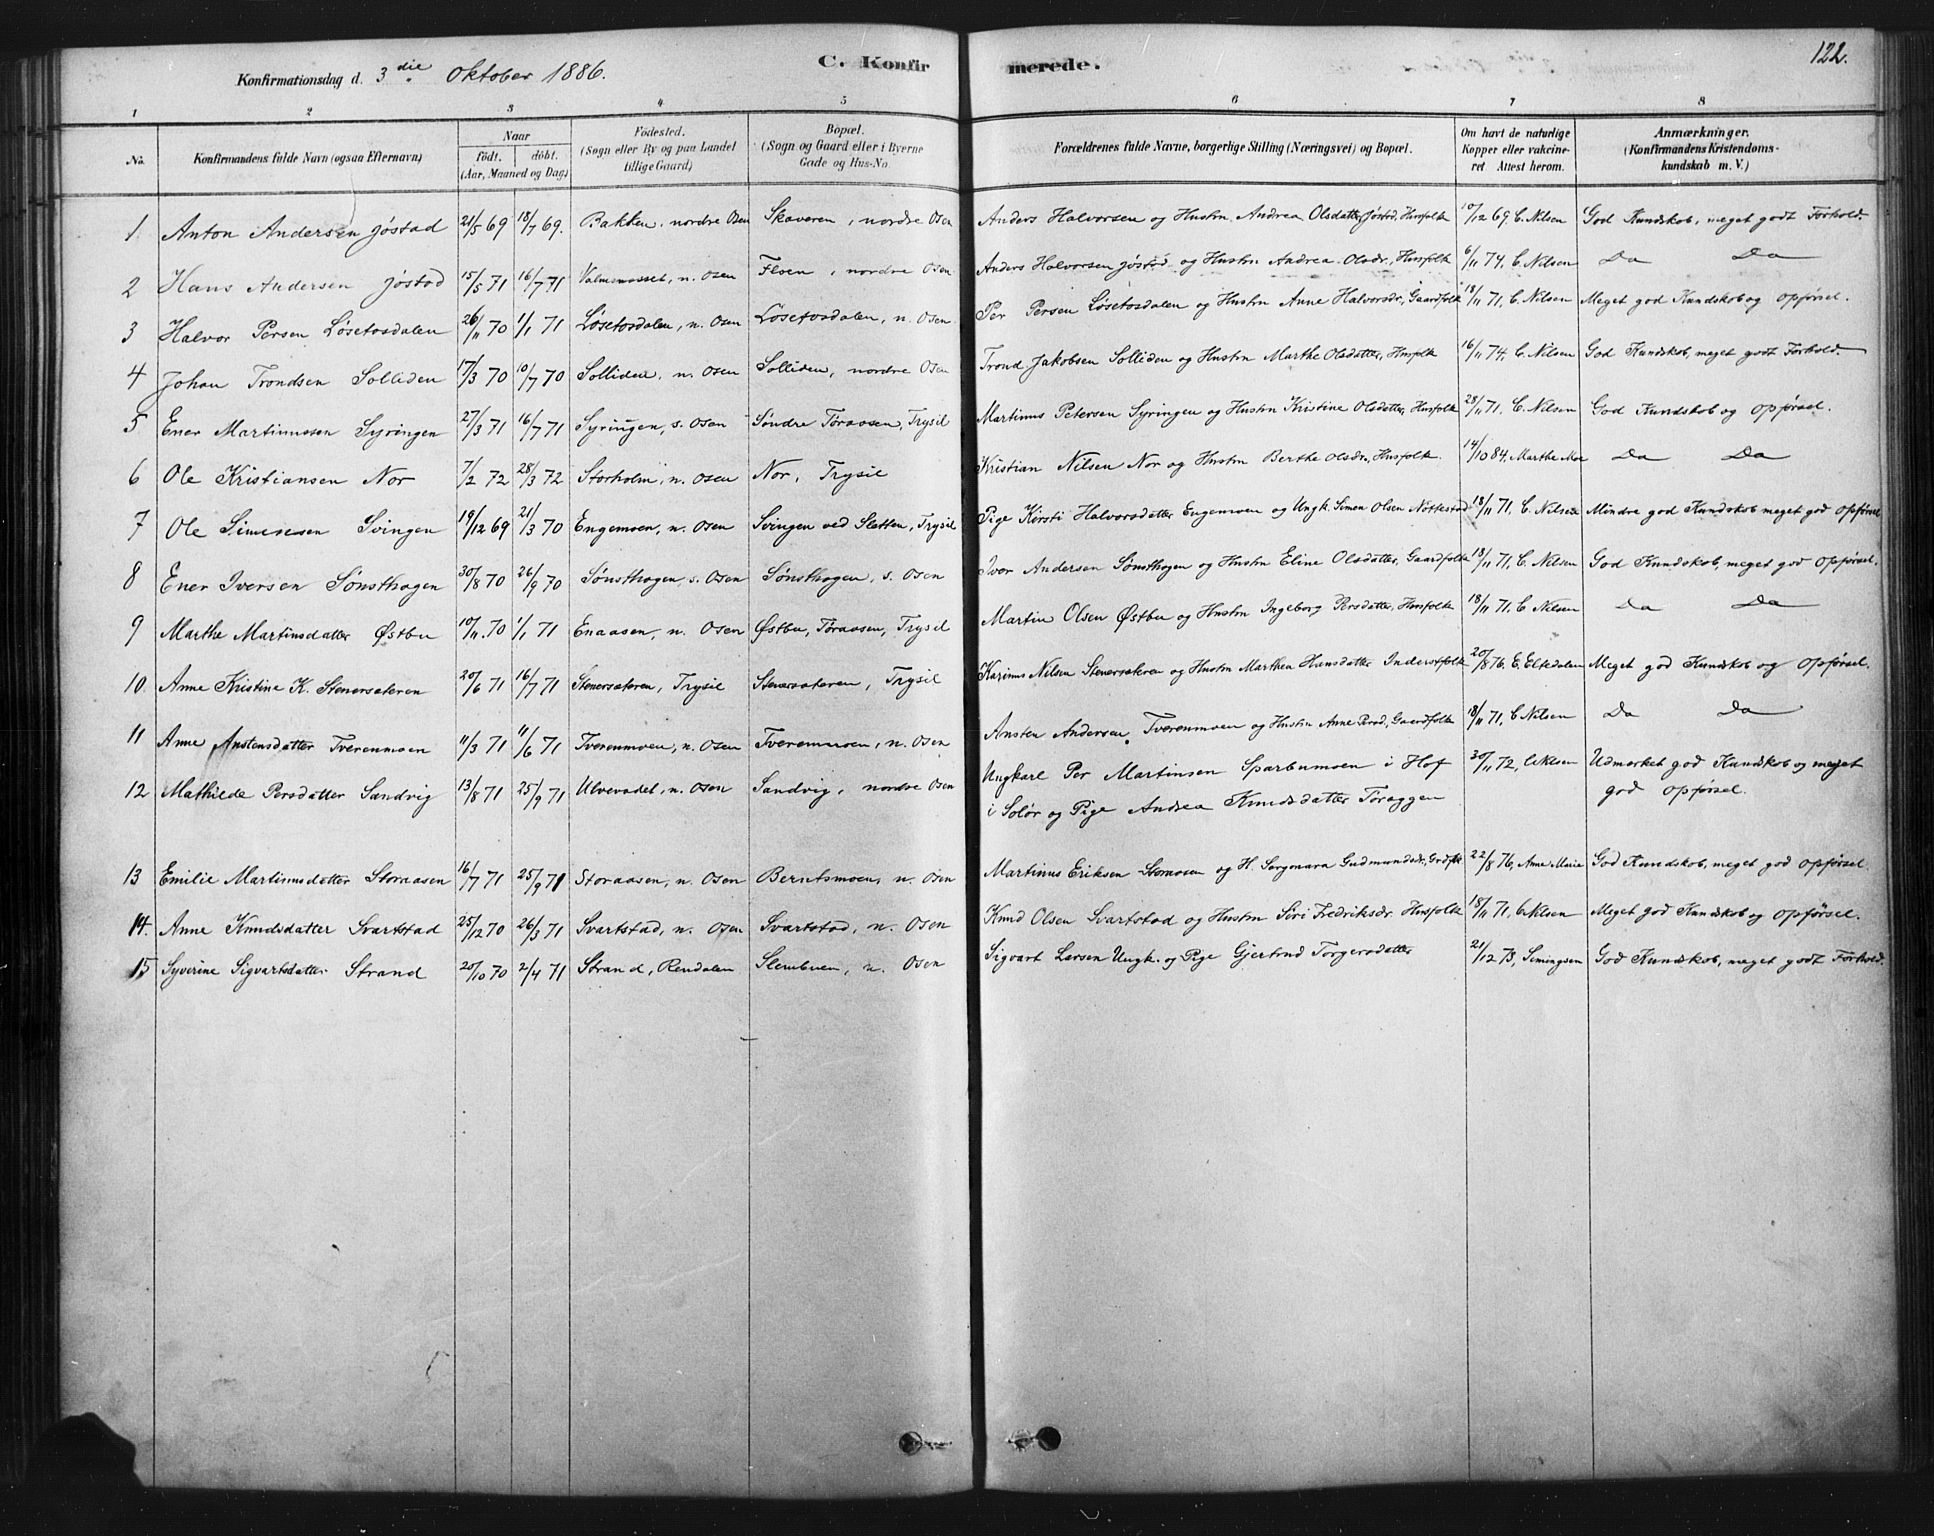 122.
Konfirmationsdag d. 3die Oktober 1886. C. Konfirmerede.
1 2 3 4 5 6 7 8
No. Konfirmandens fulde Navn (ogsaa Efternavn) Naar født. døbt. (Aar, Maaned og Dag) Födested. (Sogn eller By og paa Landet tillige Gaard) Bopæl. (Sogn og Gaard eller i Byerne Gade og Hus-No Forældrenes fulde Navne, borgerlige Stilling (Næringsvei) og Bopæl. Om havt de naturlige Kopper eller vakcineret Attest herom. Anmærkninger. (Konfirmandens Kristendomskundskab m. V.)
1 Anton Andersen Jøstad 21/5 69 18/7 69. Bakken, nordre Osen Skaveren, nordre Osen Anders Halvorsen og Hustru Andrea Olsdatter Jøstad, Husfolk 10/12 69 C. Nilsen God Kundskab, meget godt Forhold.
2 Hans Andersen Jøstad 15/5 71 16/7 71 n. Osen Floen, nordre Osen Anders Halvorsen Jøstad og Hustru Andrea Olsdr, Husfolk 6/11 74, C. Nilsen Do Do
3 Halvor Persen Løsetosdalen 26/11 70 1/1 71 Løsetosdalen, n. Osen Løsetosdalen, n. Osen Per Persen Løsetosdalen og Hustru Anne Halvorsdr, Gaardfolk 18/11 71, C. Nilsen Meget god Kundskab og Opførsel.
4 Johan Trondsen Solliden 17/3 70 10/7 70 Solliden, n. Osen Solliden, nordre Osen Trond Jakobsen Solliden og Hustru Marthe Olsdatter, Husfolk 16/11 74. C. Nilsen God Kundskab, meget godt Forhold.
5 Ener Martinussen Syringen 27/3 71 16/7 71 Syringen, s. Osen Søndre Tøraasen, Trysil Martinus Petersen Syringen og Hustru Kristine Olsdatter, Husfolk 28/11 71, C. Nilsen God Kundskab og Opførsel.
6 Ole Kristiansen Nor 7/2 72 28/3 72 Storholm, n. Osen Nor, Trysil Kristian Nilsen Nor og Hustru Berthe Olsdr, Husfolk 14/10 84, Marthe Moe Do Do
7 Ole Simensen Svingen 19/12 69 21/3 70 Engemoen, n. Osen Svingen ved Sletten, Trysil Pige Kirsti Halvorsdatter Engemoen og Ungk. Simen Olsen Nøttestad 18/11 71, C. Nilsen Mindre god Kundskab meget god Opførsel
8 Ener Iversen Sønsthagen 30/8 70 26/9 70 Sønsthagen, s. Osen Sønsthagen, s. Osen Ivor Andersen Sønsthagen og Hustru Eline Olsdatter, Gaardfolk 18/11 71, C. Nilsen God Kundskab, meget god Opførsel.
9 Marthe Martinsdatter Østbu 10/11 70 1/1 71 Enaasen, n. Osen Østbu, Tøraasen, Trysil Martin Olsen Østbu og Hustru Ingeborg Persdatter, Husfolk 18/11 71, C. Nilsen Do Do
10 Anne Kristine K. Stenersæteren 20/6 71 16/7 71 Stenersæteren, Trysil Stenersæteren, Trysil Karinus Nilsen og Hustru Marthea Hansdatter Inderstfolk 20/8 76, E. Eltedalen Meget god Kundskab og Opførsel.
11 Anne Anstensdatter Tverenmoen 11/3 71 11/6 71 Tverenmoen, n. Osen Tverenmoen, n. Osen Ansten Andersen Tverenmoen og Hustru Anne Persd, Gaardfolk 18/11 71, C. Nilsen Do Do
12 Mathilde Persdatter Sandvig 13/8 71 25/9 71 Ulvevadet, n. Osen Sandvig, nordre Osen Ungkarl Per Martinsen Sparbumoen i Hof 30/11 72, C. Nilsen Udmærket god Kundskab og meget
i Solør og Pige Andrea Knudsdatter Toraggen god Opførsel.
13 Emilie Martinusdatter Storaasen 16/7 71 25/9 71 Storaasen, n. Osen Berntsmoen, n. Osen Martinus Eriksen Storaasen og H. Gudmundsdr, Grdfk 22/8 76, Anne Marie God Kundskab, meget god Opførsel.
14. Anne Knudsdatter Svartstad 25/12 70 26/3 71 Svartstad, n. Osen Svartstad, n. Osen Knud Olsen Svartstad og Hustru Siri Fredriksdr. Husfolk 18/11 71, C. Nilsen Meget god Kundskab og Opførsel.
15 Syverine Sigvartsdatter Strand 20/10 70 2/4 71 Strand, Rendalen Slembuen, n. Osen Sigvart Larsen Ungk. og Pige Gjertrud Torgersdatter 21/12 73, Semingsen God Kundskab, meget godt Forhold.